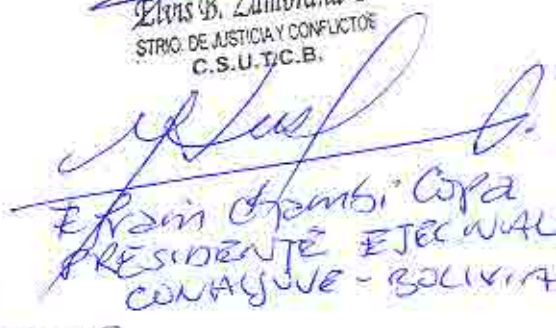 Elvis B. Zambrana
STRIO. DE JUSTICIA Y CONFLICTOS
C.S.U.T.C.B.
Efrain Chambi Copa
PRESIDENTE EJEC NAL
CONALJUVE - BOLIVIA